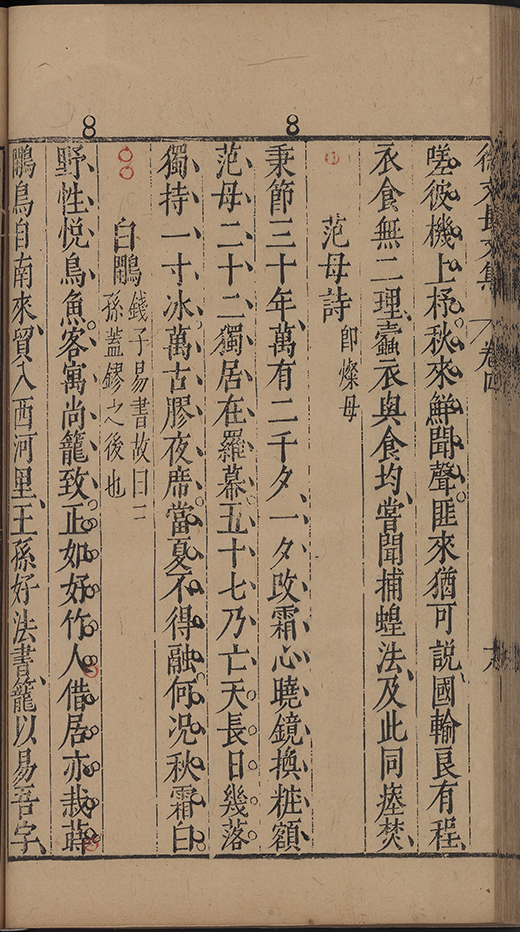 徐文長文集 卷四
嗟彼機上杼秋來鮮聞聲匪來猶可說國輸良有程
衣食無二理蠶衣與食均嘗聞捕蝗法及此同瘞焚
范母詩 即燦母
秉節三十年萬有二千夕一夕改霜心曉鏡換粧額
范母二十二獨居在羅幕五十七乃亡天長日幾落
獨持一寸冰萬古膠夜席當夏不得融何況秋霜白
白鷴 錢子易書故曰王
孫蓋鏐之後也
野性悦鳥魚客寓尚籠致正如好竹人借居亦栽蒔
鷴鳥自南來貿入西河里王孫好法書籠以易吾字
8
8